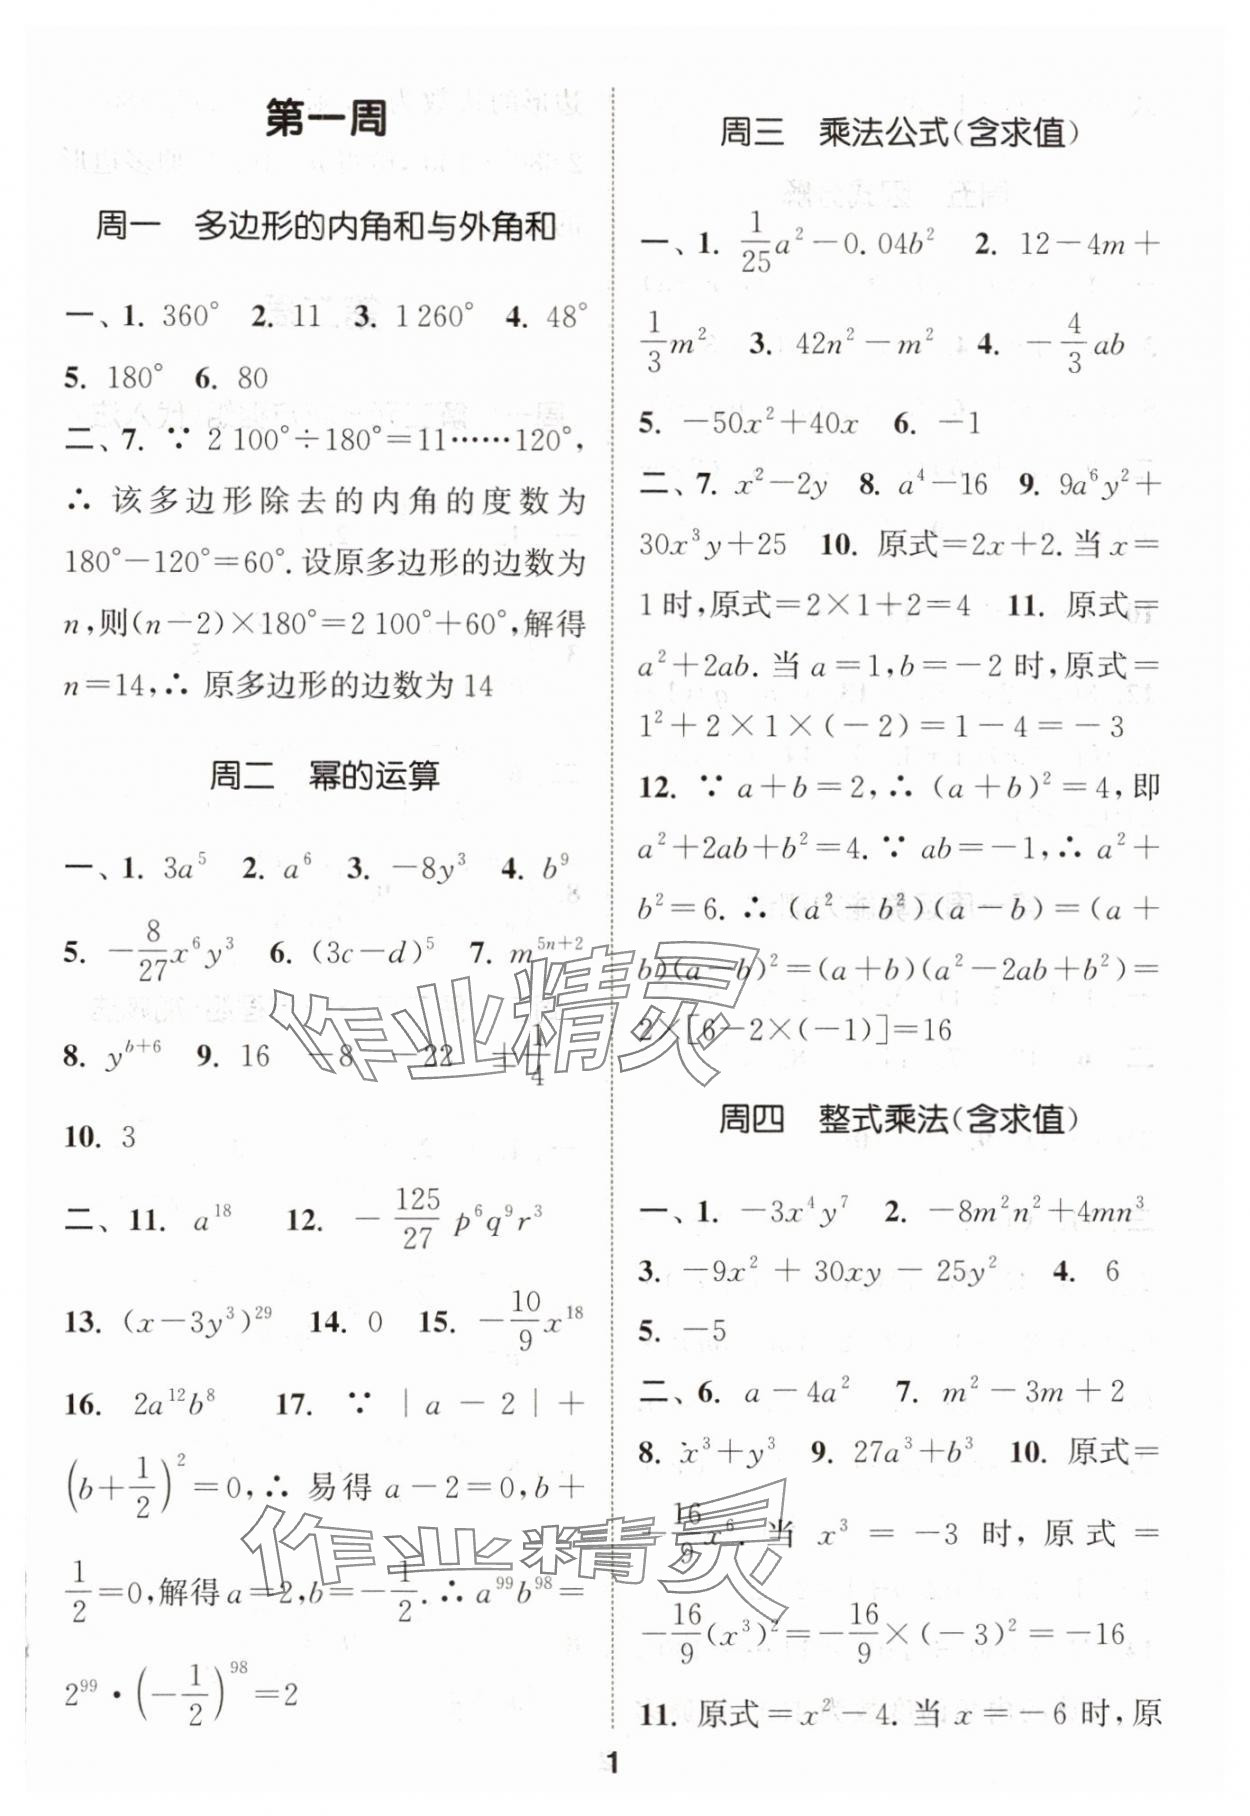 第一周
周一 多边形的内角和与外角和
一、1. 360° 2. 11 3. 1 260° 4. 48°
5. 180° 6. 80
二、7. ∵ 2 100°÷180°=11……120°,
∴ 该多边形除去的内角的度数为
180°-120°=60°.设原多边形的边数为
n,则(n-2)×180°=2 100°+60°,解得
n=14,∴ 原多边形的边数为 14
周二 幂的运算
一、1. 3a⁵ 2. a⁶ 3. -8y³ 4. b⁹
5. -8/27x⁶y³ 6. (3c-d)⁵ 7. m⁵ⁿ⁺²
8. y^(b+6) 9. 16 -8 -22 ±1/4
10. 3
二、11. a¹⁸ 12. -125/27 p⁶q⁹r³
13. (x-3y³)²⁹ 14. 0 15. -10/9x¹⁸
16. 2a¹²b⁸ 17. ∵ |a-2|+
(b+1/2)²=0,∴ 易得 a-2=0,b+
1/2=0,解得 a=2,b=-1/2.∴ a⁹⁹b⁹⁸=
2⁹⁹·(-1/2)⁹⁸=2
周三 乘法公式(含求值)
一、1. 1/25a²-0.04b² 2. 12-4m+
1/3m² 3. 42n²-m² 4. -4/3ab
5. -50x²+40x 6. -1
二、7. x²-2y 8. a⁴-16 9. 9a⁶y²+
30x³y+25 10. 原式=2x+2.当 x=
1时,原式=2×1+2=4 11. 原式=
a²+2ab.当 a=1,b=-2 时,原式=
1²+2×1×(-2)=1-4=-3
12. ∵ a+b=2,∴ (a+b)²=4,即
a²+2ab+b²=4.∵ ab=-1,∴ a²+
b²=6.∴ (a²-b²)(a-b)=(a+
b)(a-b)²=(a+b)(a²-2ab+b²)=
2×[6-2×(-1)]=16
周四 整式乘法(含求值)
一、1. -3x⁴y⁷ 2. -8m²n²+4mn³
3. -9x²+30xy-25y² 4. 6
5. -5
二、6. a-4a² 7. m²-3m+2
8. x³+y³ 9. 27a³+b³ 10. 原式=
-16/9x⁶.当 x³=-3 时,原式=
-16/9(x³)²=-16/9×(-3)²=-16
11. 原式=x²-4.当 x=-6 时,原
1
作业精灵
作业精灵